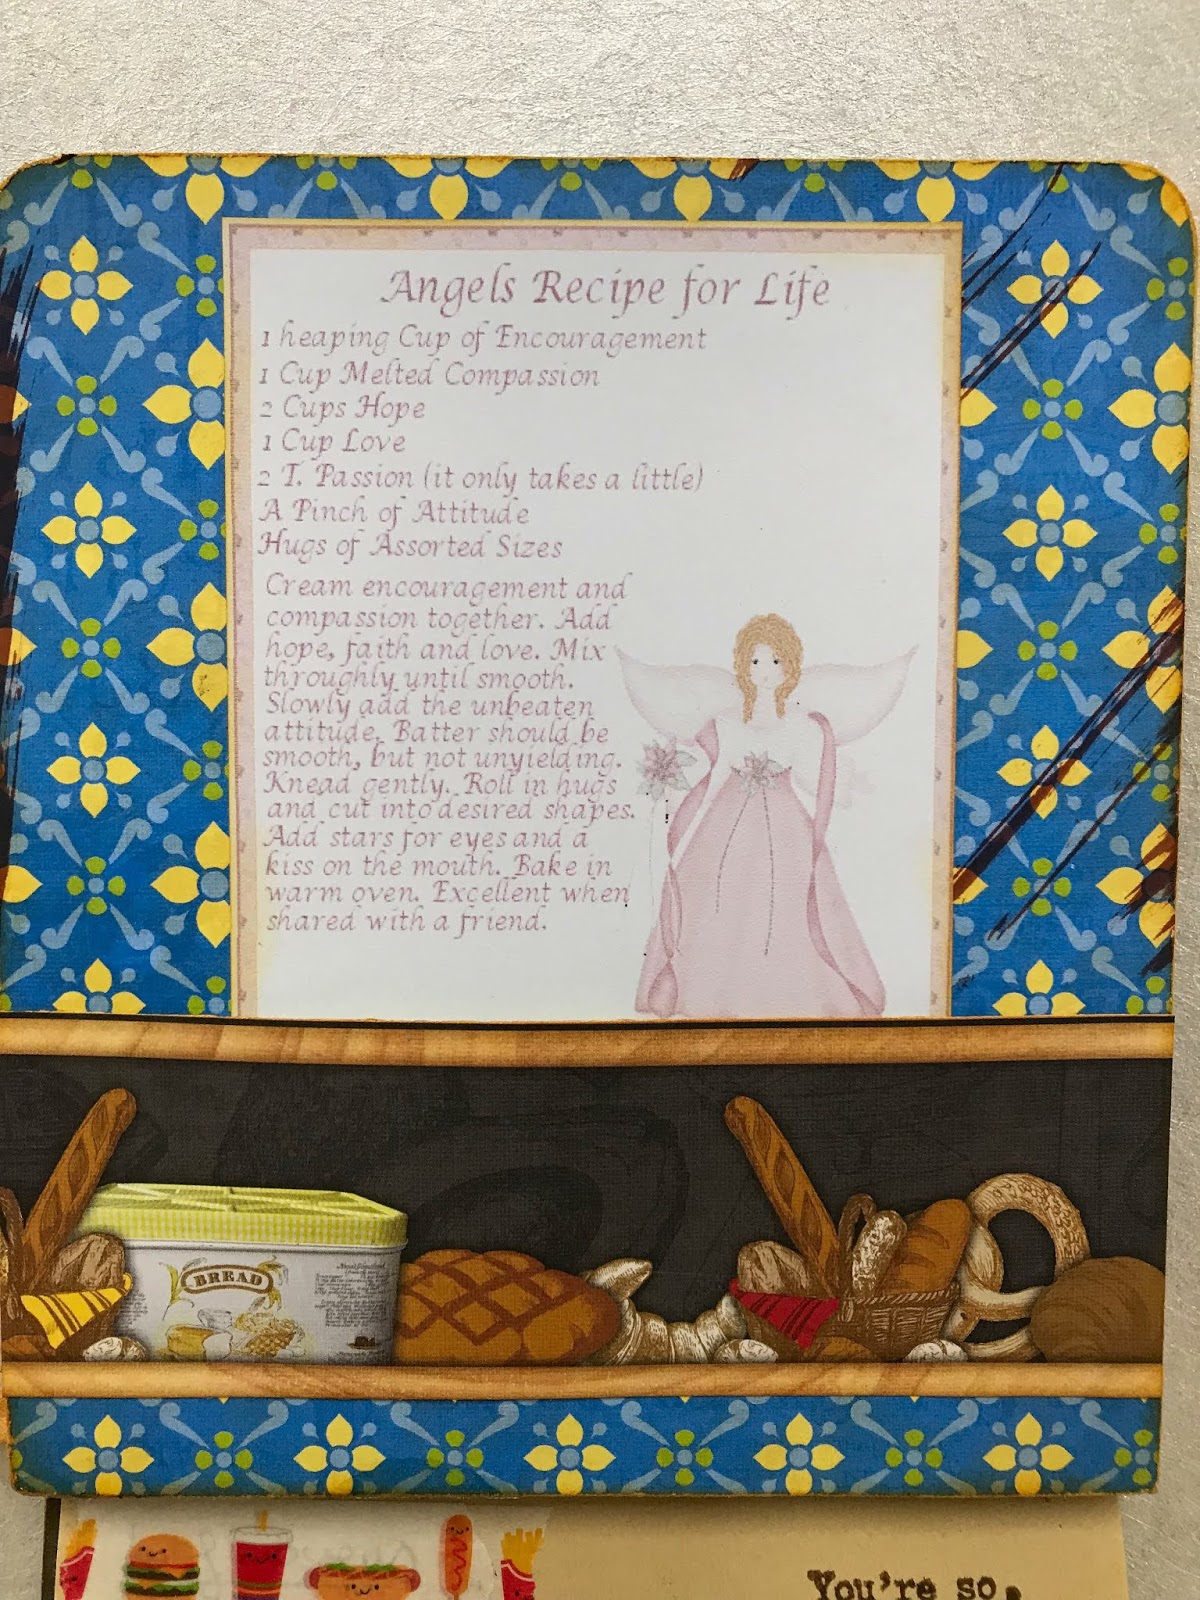 Angels Recipe for Life
1 heaping Cup of Encouragement
1 Cup Melted Compassion
2 Cups Hope
1 Cup Love
2 T. Passion (it only takes a little)
A Pinch of Attitude
Hugs of Assorted Sizes
Cream encouragement and
compassion together. Add
hope, faith and love. Mix
throughly until smooth.
Slowly add the unbeaten
attitude. Batter should be
smooth, but not unyielding.
Knead gently. Roll in hugs
and cut into desired shapes.
Add stars for eyes and a
kiss on the mouth. Bake in
warm oven. Excellent when
shared with a friend.
BREAD
You're so